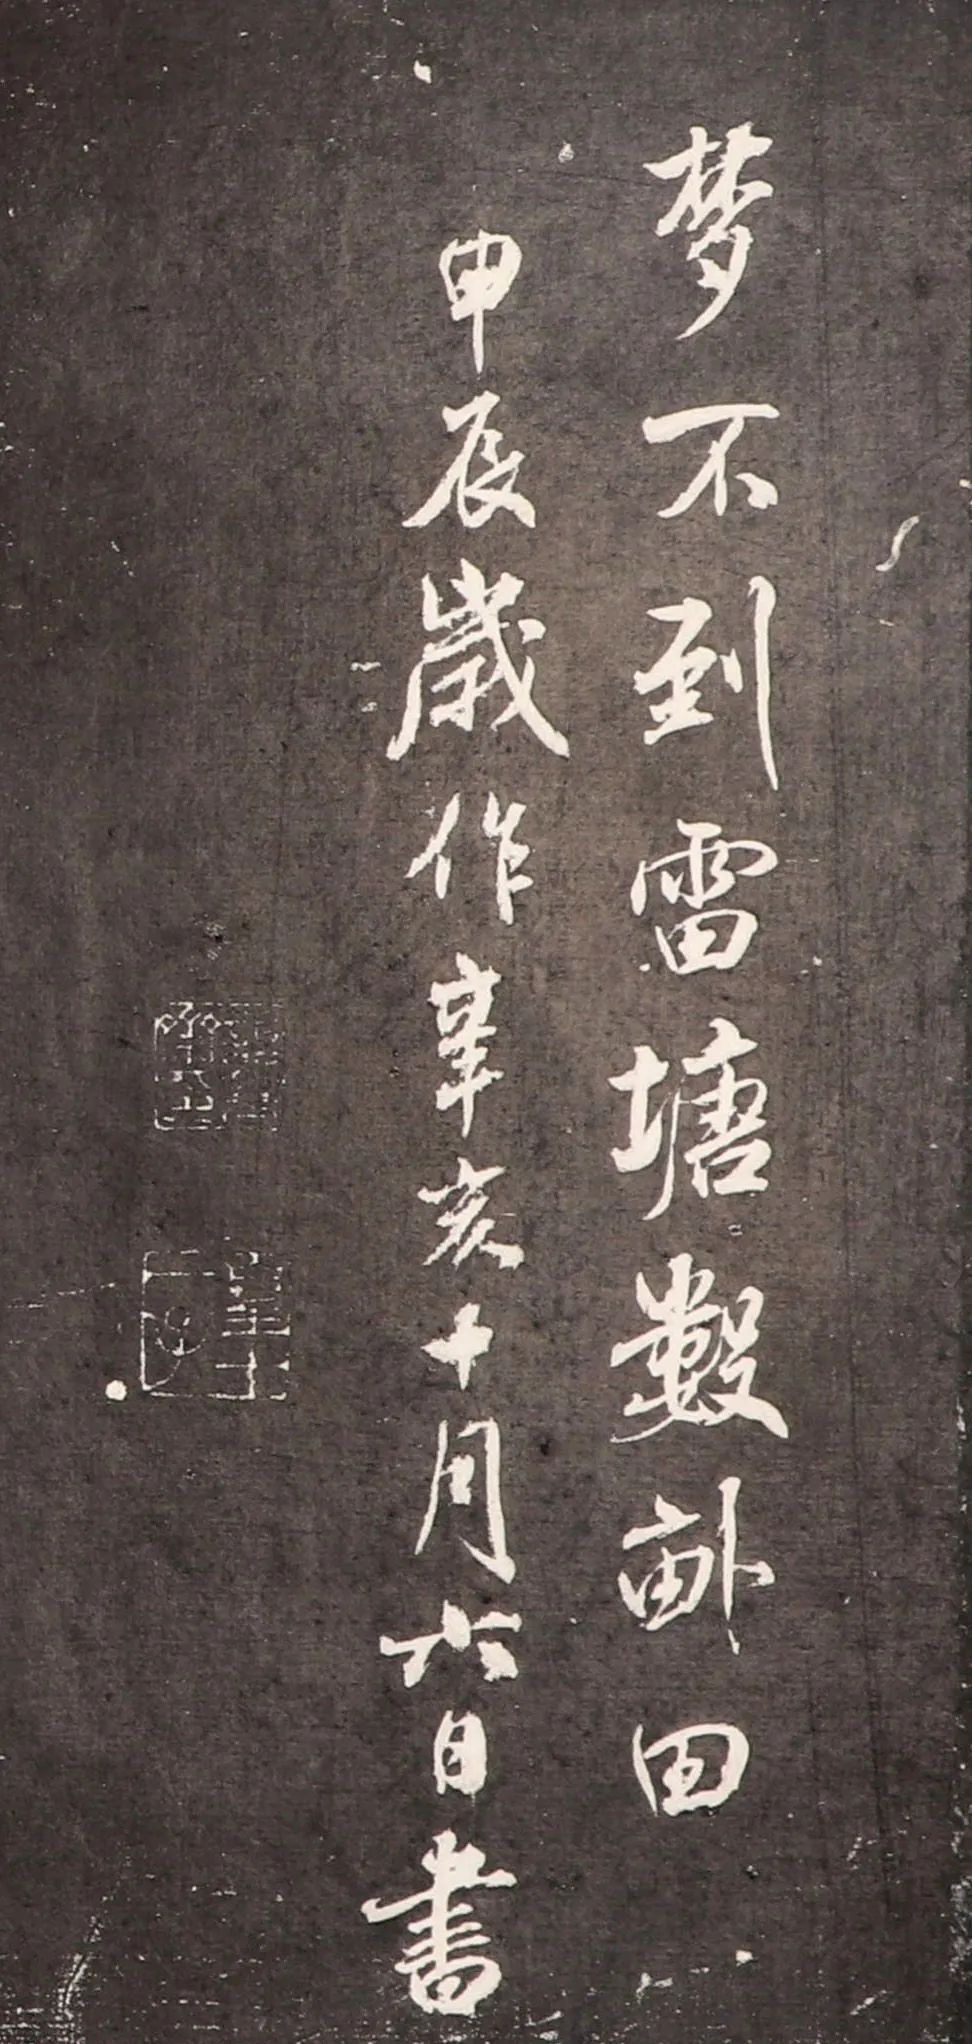 梦不到雷塘數畝田
甲辰歲作辛亥十月六日書